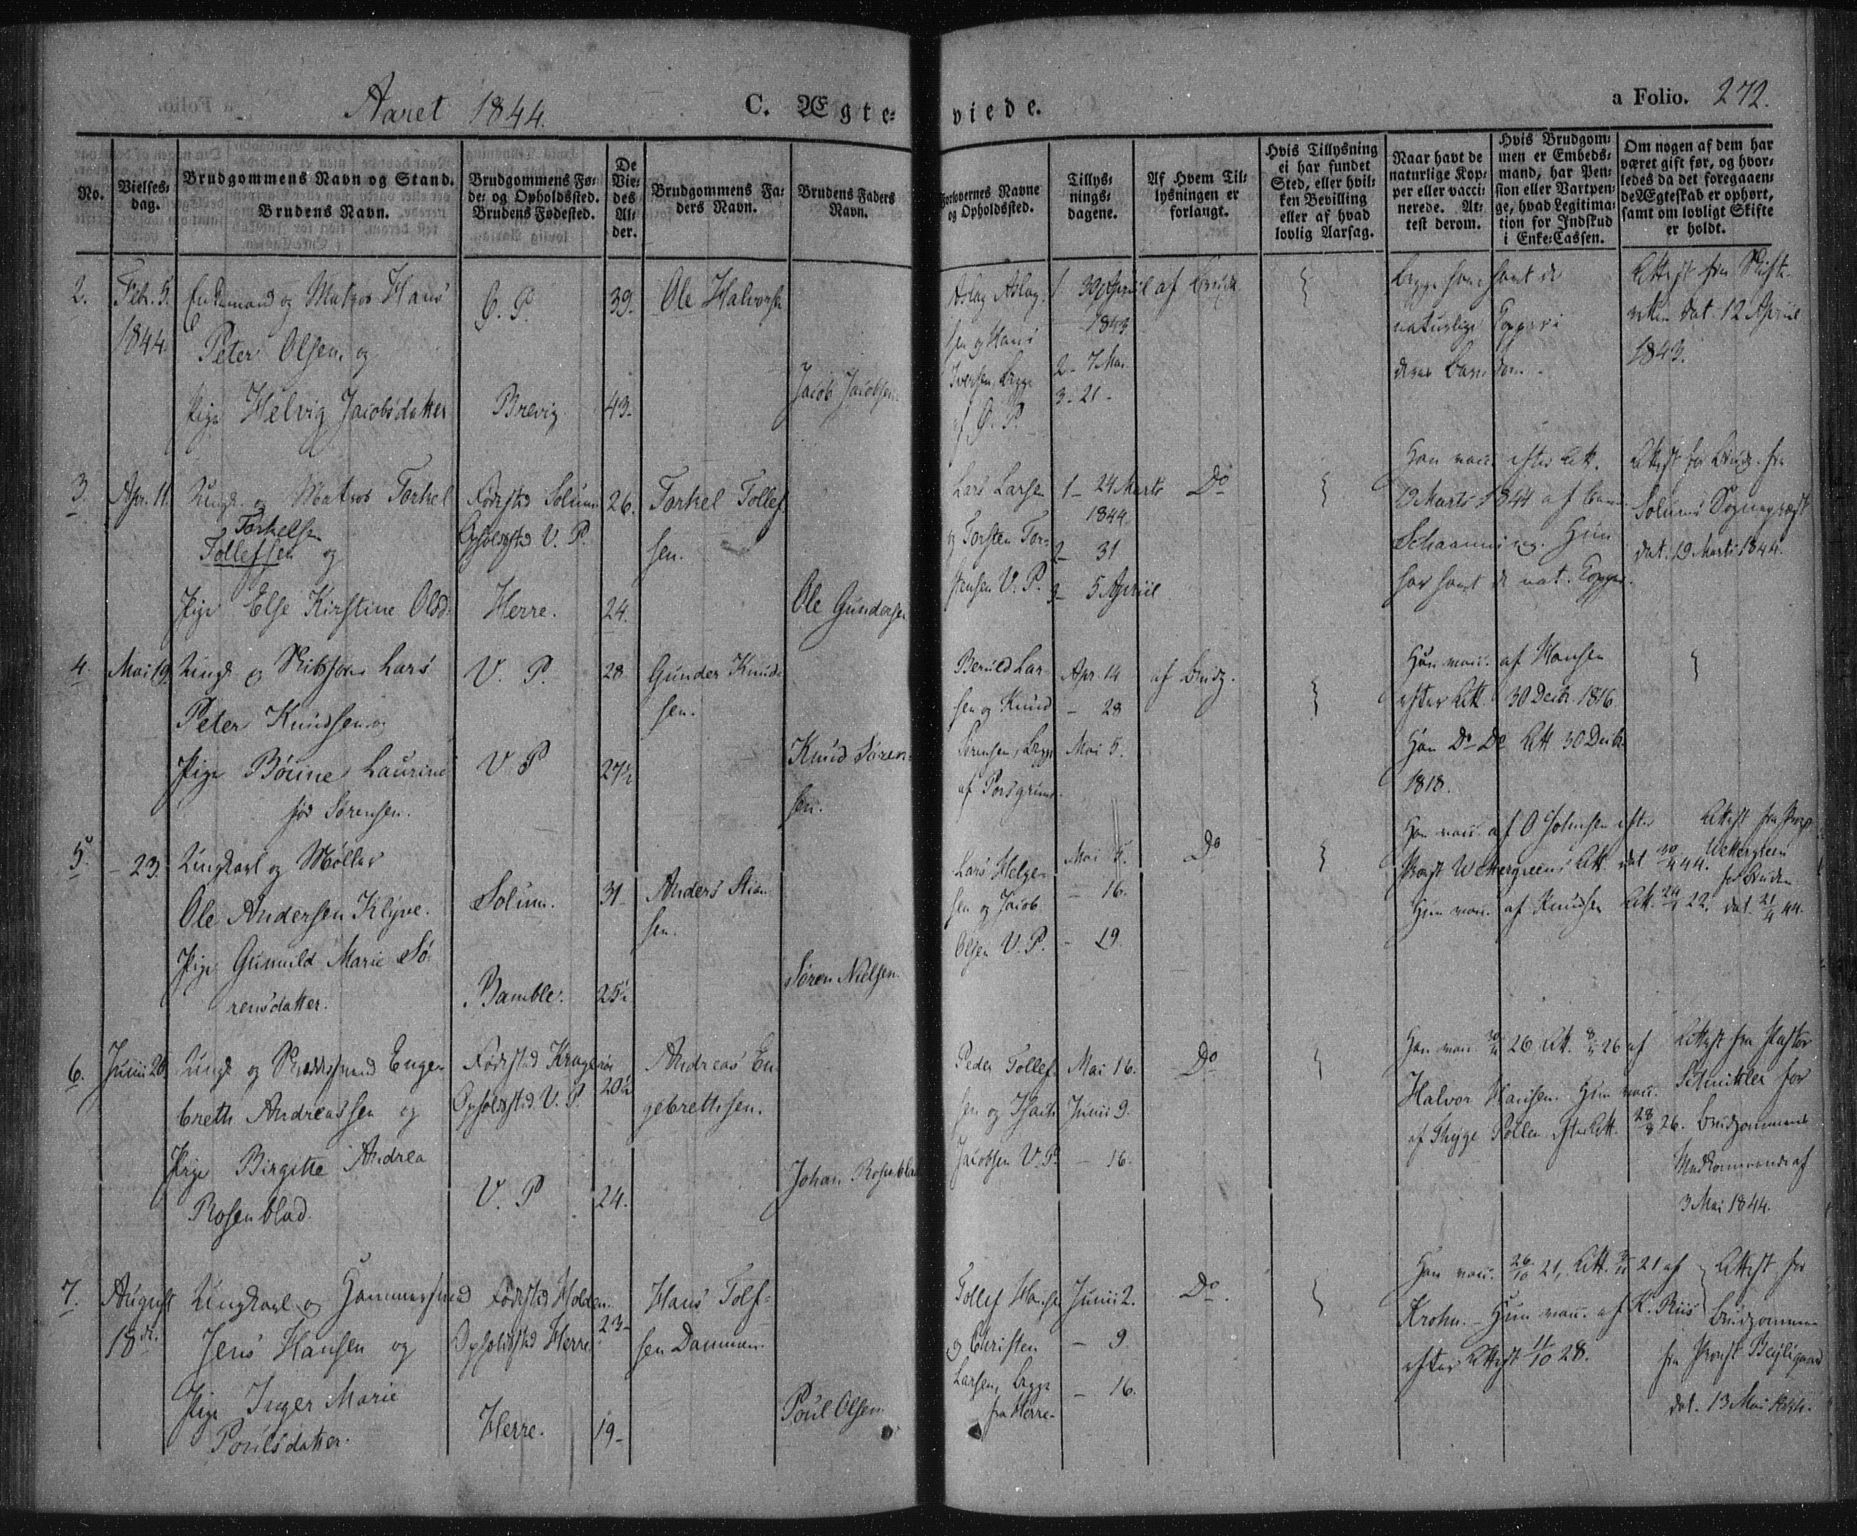 Aaret 1844. C. Ægte= viede. a Folio. 272.
No.
Vielses=
dag.
Brudgommens Navn og Stand.
Brudens Navn.
Brudgommens Fø=
de= og Opholdssted.
Brudens Fødested.
De
Vie=
des
Al=
der.
Brudgommens Fa=
ders Navn.
Brudens Faders
Navn.
Forlovernes Navne
og Opholdssted.
Tillys=
nings=
dagene.
Af Hvem Til=
lysningen er
forlangt.
Hvis Tillysning
ei har fundet
Sted, eller hvil=
ken Bevilling
eller af hvad
lovlig Aarsag.
Naar havt de
naturlige Kop=
per eller vacci=
nerede. At=
test derom.
Hvis Brudgom=
men er Embeds=
mand, har Pen=
sion eller Vartpen=
ge, hvad Legitima=
tion for Indskud
i Enke=Cassen.
Om nogen af dem har
været gift før, og hvor=
ledes da det foregaaen=
de Ægteskab er ophørt,
samt om lovligt Skifte
er holdt.
2.
Feb. 5.
1844.
Enkemand og Matros Hans
Peter Olsen og
Pige Helvig Jacobsdatter
Ø. P.
Brevig.
39.
43-
Ole Halvorsen
Jacob Jacobsen
Aslag Aslag-
sen og Hans
Iversen, begge
af Ø. P.
1 30 Apriil
1843
2- 7 Mai
3- 21-
af Brudg.
begge have havt de
naturlige Kopper i
deres Barndom.
Attest fra Skifte-
retten dat. 12 Apriil
1843.
3.
Apr. 11.
Ungk. og Matros Torkel
Torkelsen
Tollefsen og
Pige Else Kirstine Olsd.
Fødested Solum
Opholdssted V. P.
Herre.
26.
24.
Torkel Tollef-
sen.
Ole Gundersen
Lars Larsen
og Torsten Tor-
stensen V. P.
1- 24 Marts
1844
2- 31
3- 5 Apriil
Do
Han vacc. efter Att.
29 Marts 1844 af
Schaanning. Hun
har havt de nat. Kopper.
Attest for Brudg. fra
Solums Sognepræst
dat. 19 Marts 1844.
4.
Mai 19.
Ungk. og Skibstøm. Lars
Peter Knudsen og
Pige Børine Laurine
fød Sørensen.
V. P.
V. P
28
27½
Gunder Knud-
sen.
Knud Søren-
sen.
Berild Lar-
sen og Knud
Sørensen, begge
af Porsgrund.
Apr. 14
- 28
Mai 5.
af Brudg.
Han vacc. af Hansen
efter Att. 30 Decbr. 1816
Hun Do Do Att. 30 Decbr.
1818.
5.
- 23.
Ungkarl og Møller
Ole Andersen Klyve.
Pige Gunnild Marie Sø-
rensdatter.
Solum.
Bamble.
31-
25½
Anders Stian-
sen.
Søren Nielsen.
Lars Helge-
sen og Jacob
Olsen V. P.
Mai 5.
- 16.
- 19.
Do
Han vacc. af O Johnsen efter
Provst Wettergreens Att. dat 30/4 44.
Hun vacc. af Knudsen Att. 24/9 22.
Attest fra Provst
Wettergreen
for Bruden
dat. 21/4 44.
6.
Junii 20.
Ungk. og Skræddersvend Enge-
breth Andreassen og
Pige Birgitte Andrea
Rosenblad.
Fødested Kragerø
Opholdssted V. P.
V. P
20½
24.
Andreas En-
gebrettsen.
Johan Rosenblad
Peder Tollef-
sen og Isach
Jacobsen V. P.
Mai 16.
Junii 9.
- 16.
Do
Han vacc. 26 Att. 26 af
Halvor Hansen. Hun vacc.
af Thyge Poulsen efter Att. 28/8 26.
Attest fra Pastor
Schnitler for
Brudgommens
Vedkommende af
3 Mai 1844.
7.
August
18de.
Ungkarl og Hammersmed
Jens Hansen og
Pige Inger Marie
Poulsdatter.
Fødested Holden.
Opholdssted Herre
Herre.
23-
19-
Hans Tolf-
sen Dammen.
Poul Olsen
Tollef Hansen
og Christen
Larsen, begge
fra Herre.
Junii 2.
- 9.
- 16.
Do.
Han vacc. 26/10 21, Att. 21 af
Krohn. Hun vacc. af K. Riis
efter Attest 11/10 28.
Attest for
Brudgommen
fra Provst Beyligaard
dat. 13 Mai 1844.